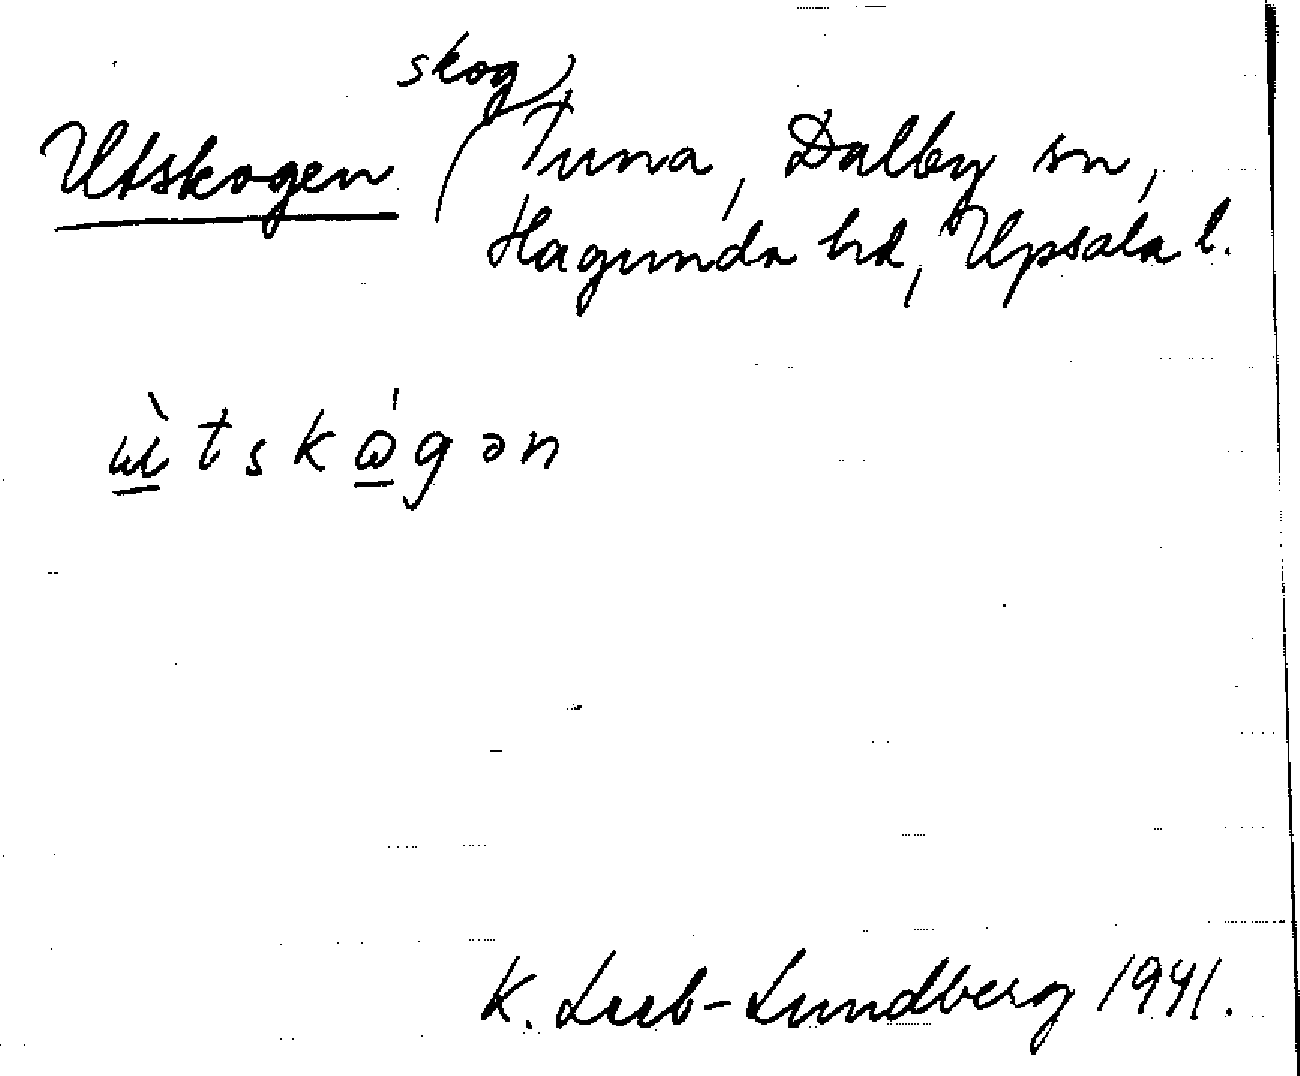 skog
Utskogen Tuna, Dalby sn,
Hagunda hd, Upsala l.
ɯ̀tskɷ́gən
K. Leeb-Lundberg 1941.